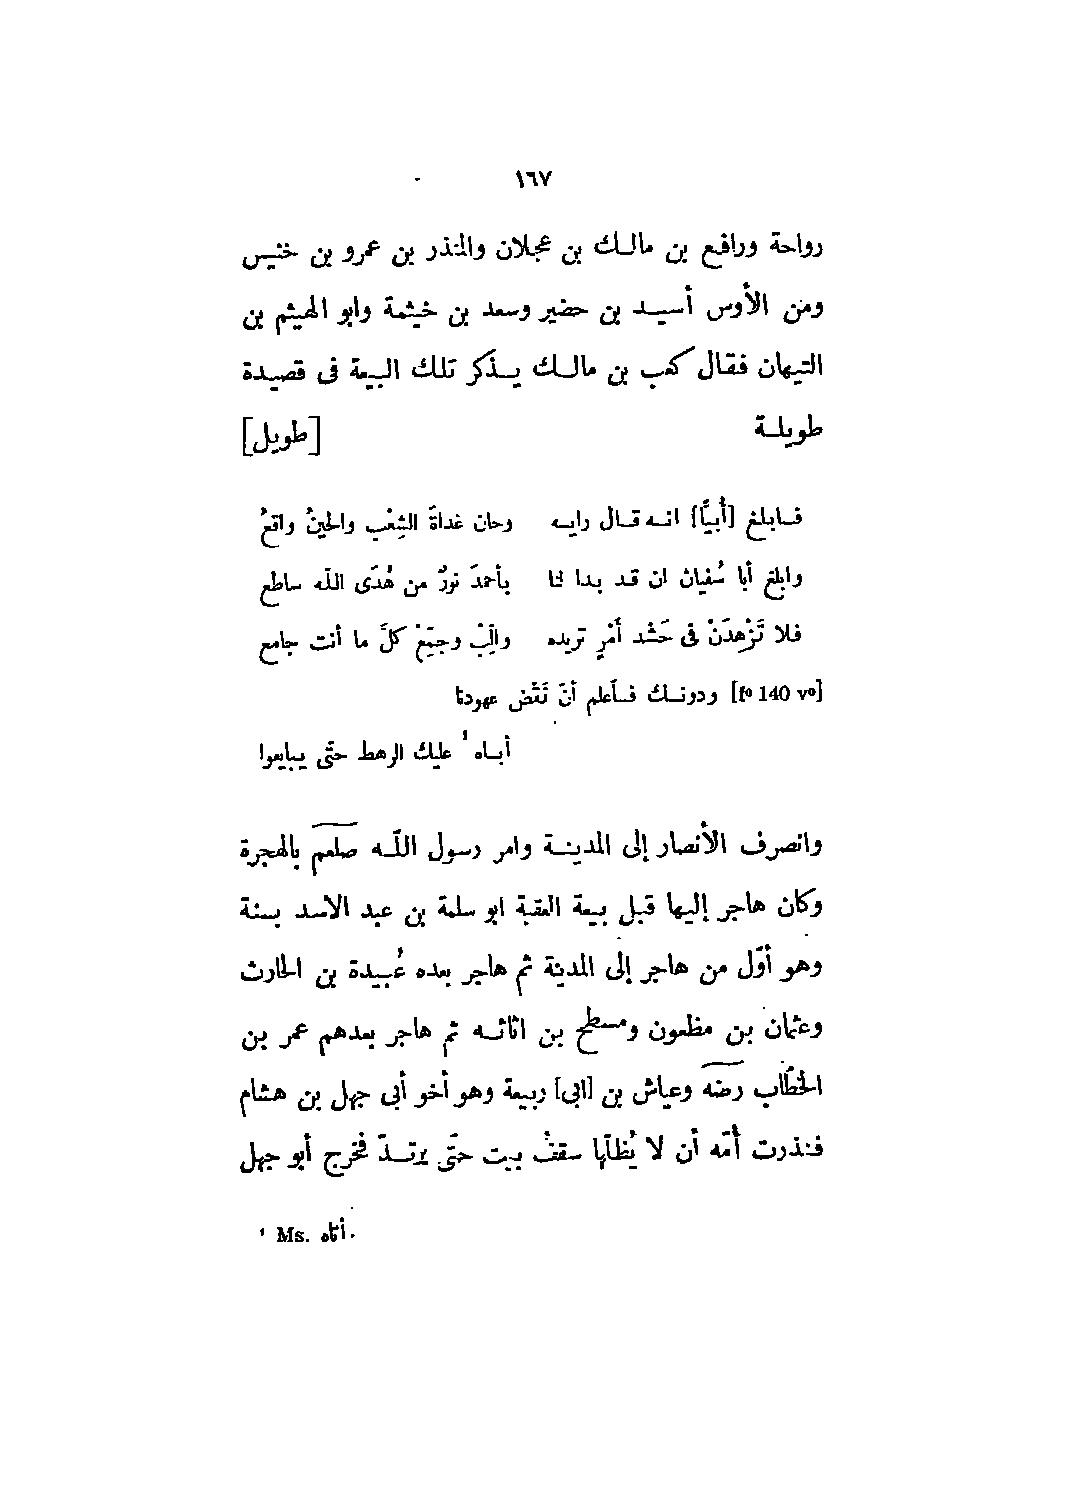 ١٦٧
رواحة ورافع بن مالك بن عجلان والمنذر بن عمرو بن خنيس
ومن الأوس أسيد بن حضير وسعد بن خيثمة وابو الهيثم بن
التيهان فقال كعب بن مالك يذكر تلك البيعة فى قصيدة
طويلة [طويل]
فابلغ [أُبيًّا] انه قال رايه وحان غداةَ الشِعْب والحينُ واقعُ
وابلغ أبا سُفيان ان قد بدا لنا بأحمدَ نورٌ من هُدَى اللّه ساطع
فلا تَزْهدَنْ فى حَشْد أمْرٍ تريده وألِّبْ وجمِّعْ كلَّ ما أنت جامع
[fº 140 vº] ودونك فأعلم أنّ نَقْض عهودنا
أباه ¹ عليك الرهط حتّى يبايعوا
وانصرف الأنصار إلى المدينة وامر رسول اللّه صلعم بالهجرة
وكان هاجر إليها قبل بيعة العقبة ابو سلمة بن عبد الاسد بسنة
وهو أوّل من هاجر إلى المدينة ثم هاجر بعده عُبيدة بن الحارث
وعثمان بن مظعون ومسطح بن اثاثه ثم هاجر بعدهم عمر بن
الخطّاب رضه وعياش بن [ابى] ربيعة وهو أخو أبى جهل بن هشام
فنذرت أمّه أن لا يُظلّها سقفُ بيت حتّى يرتدّ فخرج أبو جهل
¹ Ms. أتاه.